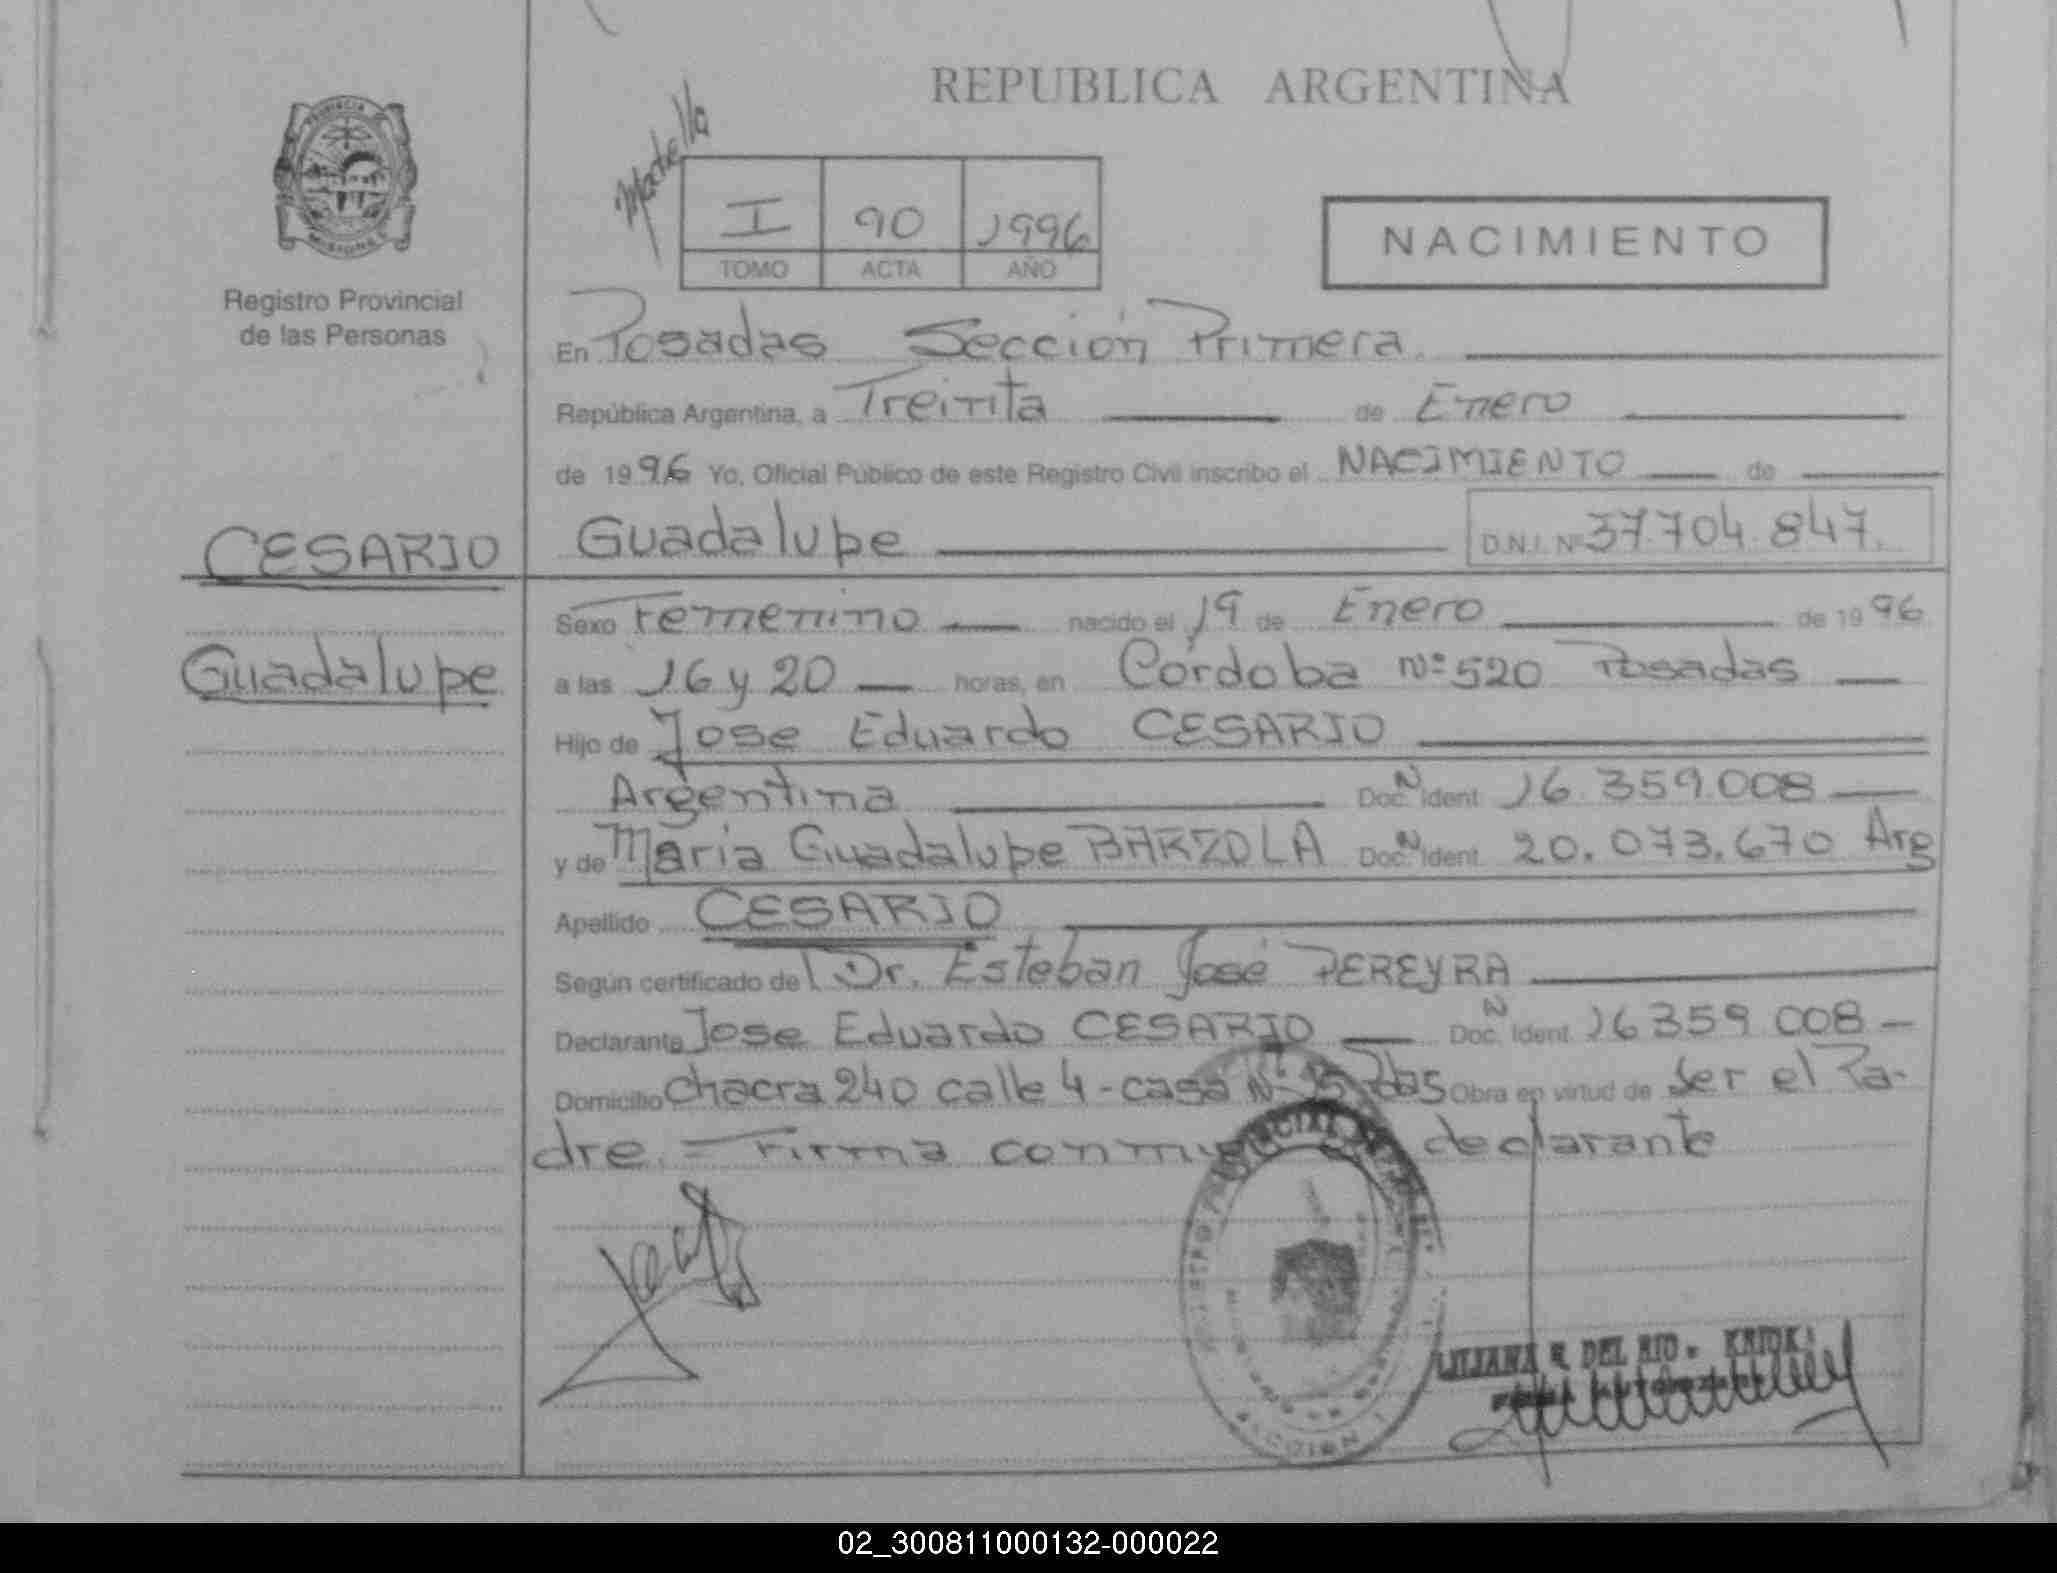 REPUBLICA ARGENTINA
PROVINCIA
MISIONES
Registro Provincial
de las Personas
I 90 1996
TOMO ACTA AÑO
NACIMIENTO
En Posadas Sección Primera
República Argentina, a Treinta de Enero
de 1996 Yo, Oficial Público de este Registro Civil inscribo el NACIMIENTO de
CESARIO Guadalupe D.N.I. Nº 37.704.847.
Sexo Femenino nacido el 19 de Enero de 1996
Guadalupe
a las 16 y 20 horas, en Córdoba Nº 520 Posadas
Hijo de Jose Eduardo CESARIO
Argentina Doc. N Ident. 16.359.008
y de Maria Guadalupe BARZOLA Doc. N Ident. 20.073.670 Arg
Apellido CESARIO
Según certificado de Dr. Esteban José PEREYRA
Declarante Jose Eduardo CESARIO Doc. N Ident. 16359.008
Domicilio Chacra 240 calle 4 - casa Nº Pdas Obra en virtud de Ser el Pa-
dre. - Firma declarante
LILIANA R. DEL RIO
02_300811000132-000022